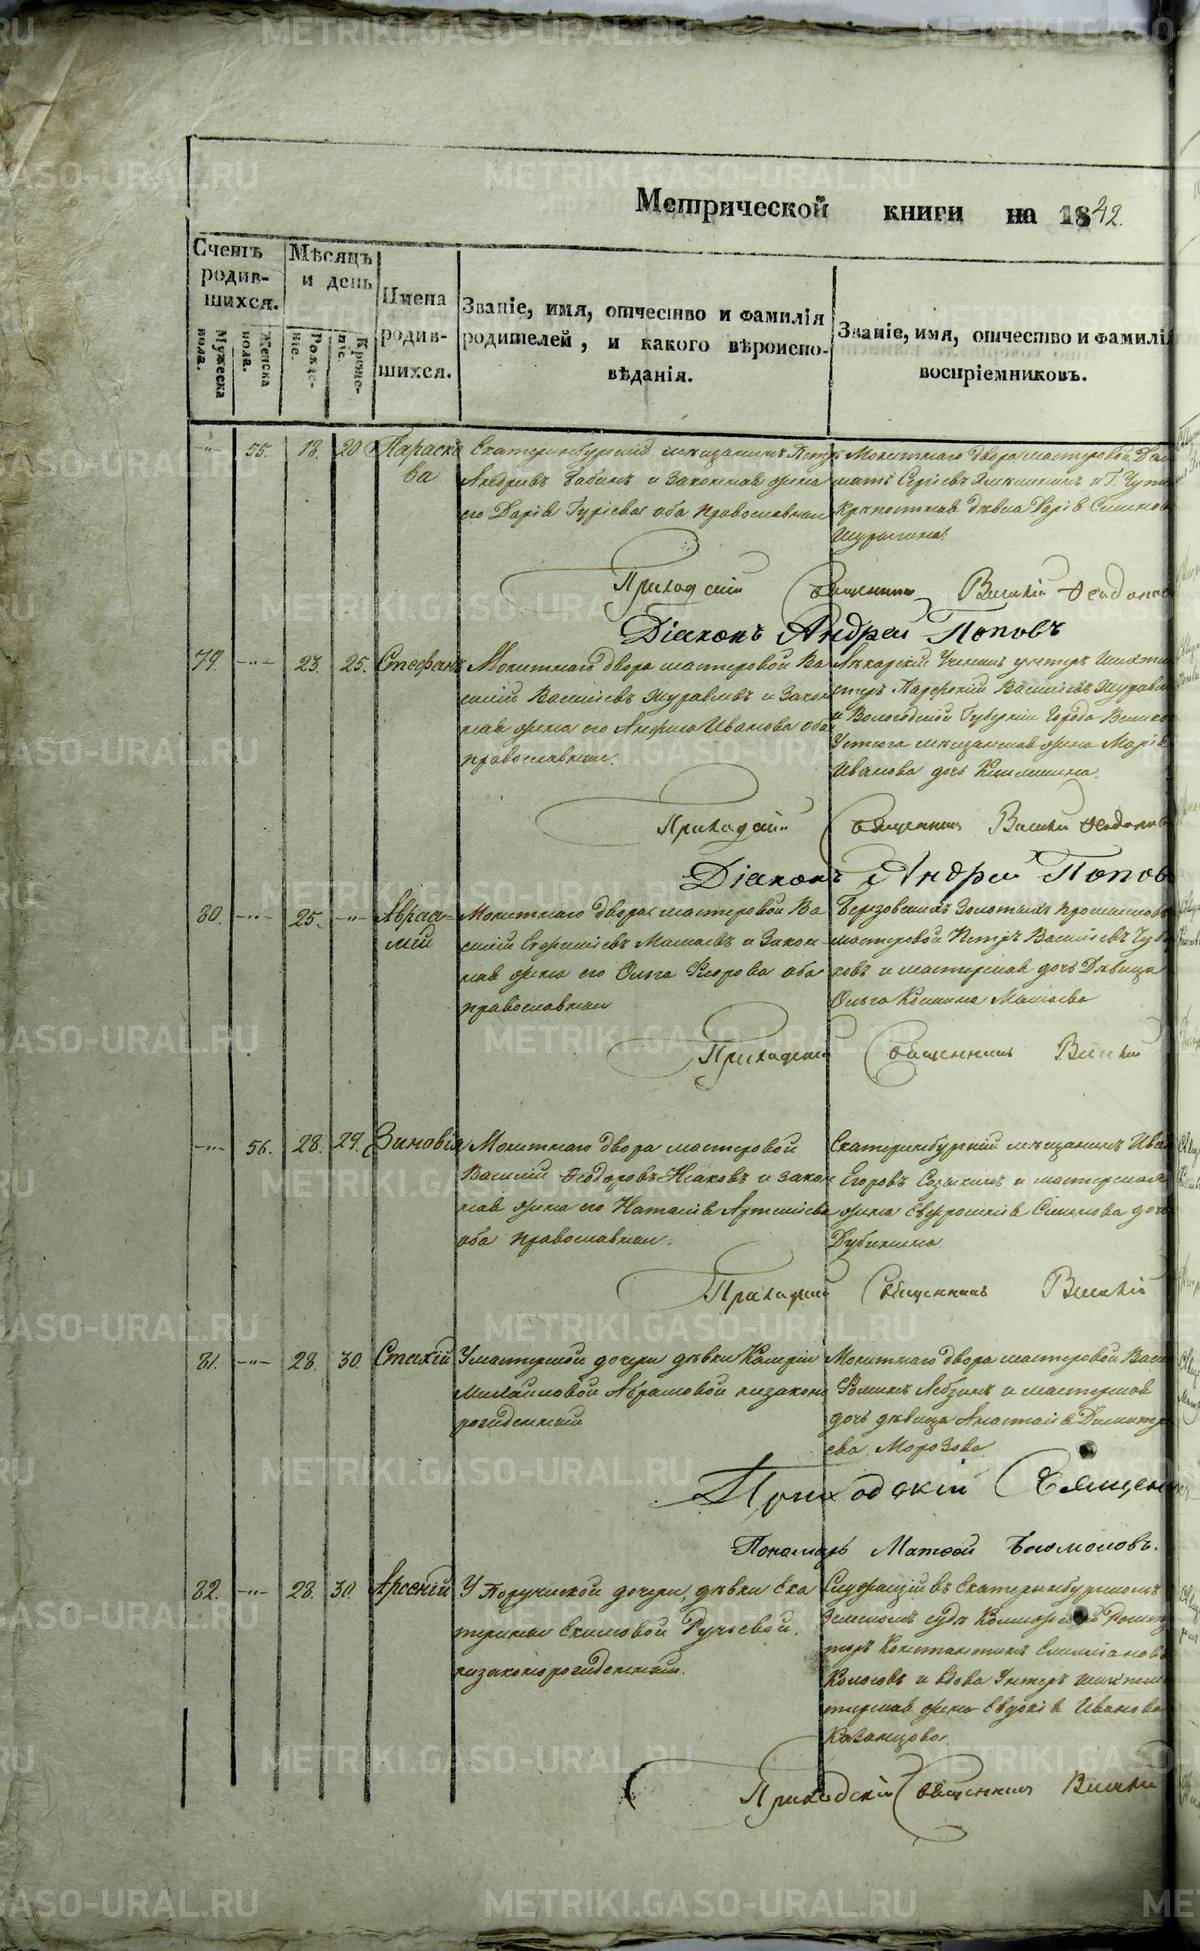 Метрической книги на 1842.
Счетъ родившихся.
Мужеска пола.
Женска пола.
Мѣсяцъ и день
Рожденіе.
Крещеніе.
Имена родившихся.
Званіе, имя, отчество и фамилія
родителей, и какого вѣроиспо-
вѣданія.
Званіе, имя, отчество и фамилія
воспріемниковъ.
-"- 55. 18. 20 Параске
ва
Екатеринбургскій мѣщанинъ Петръ
Андреевъ Бабинъ и законная жена
его Дарія Гуріева оба православные
Монетнаго двора мастеровой
крѣпостная дѣвка Дарія
Приходскій Священникъ Василій Ѳедоно
Діаконъ Андрей Поповъ
79. -"- 23. 25. Стефанъ
Монетнаго двора мастеровой Ва
силій Васильевъ Журавлевъ и закон
ная жена его Анфиса Иванова оба
православные.
Аптекарскій ученикъ унтеръ шихтмей
стеръ Парфеній Васильевъ Журавле
и Вологодской Губерніи города Велико
Устюга мѣщанская жена Марія
Иванова дочь
Приходскій Священникъ Василій
Діаконъ Андрей Попов
80. -"- 25. -"- Авраа-
мій
Монетнаго двора мастеровой Ва
силій Ефимьевъ Малаевъ и закон
ная жена его Ольга Ѳедорова оба
православные
Березовскихъ золотыхъ промысловъ
мастеровой Петръ Васильевъ
ковъ и мастерская дочь дѣвица
Ольга Малаева
Приходскій Священникъ Василій
-"- 56. 28. 29. Зиновія
Монетнаго двора мастеровой
Василій Ѳеодоровъ Исаковъ и закон
ная жена его Наталія Артемьева
оба православные.
Екатеринбургскій мѣщанинъ Иван
Егоровъ и мастерская
жена Евфросинія Семенова дочь
Дубинина
Приходскій Священникъ Василій
81. -"- 28. 30. Стахій
У мастерской дочери дѣвки Валеріи
Михайловой Абрамовой незаконно
рожденный
Монетнаго двора мастеровой Васи
Ѳоминъ и мастерская
дочь дѣвица Анастасія Димитрі
ева Морозова
Приходскій Священникъ
Пономарь Матѳей Богомоловъ.
82. -"- 28. 30. Арсеній
У Поручиской дочери, дѣвки Ека
терины Екимовой Ручьевой
незаконорожденный.
Служащій въ Екатеринбургскомъ
Земскомъ судѣ Регист
торъ Константинъ Емельяновъ
Колосовъ и вдова Унтеръ шихтмей
стерская жена Евдокія Иванова
Казанцова.
Приходскій Священникъ Василій
METRIKI.GASO-URAL.RU